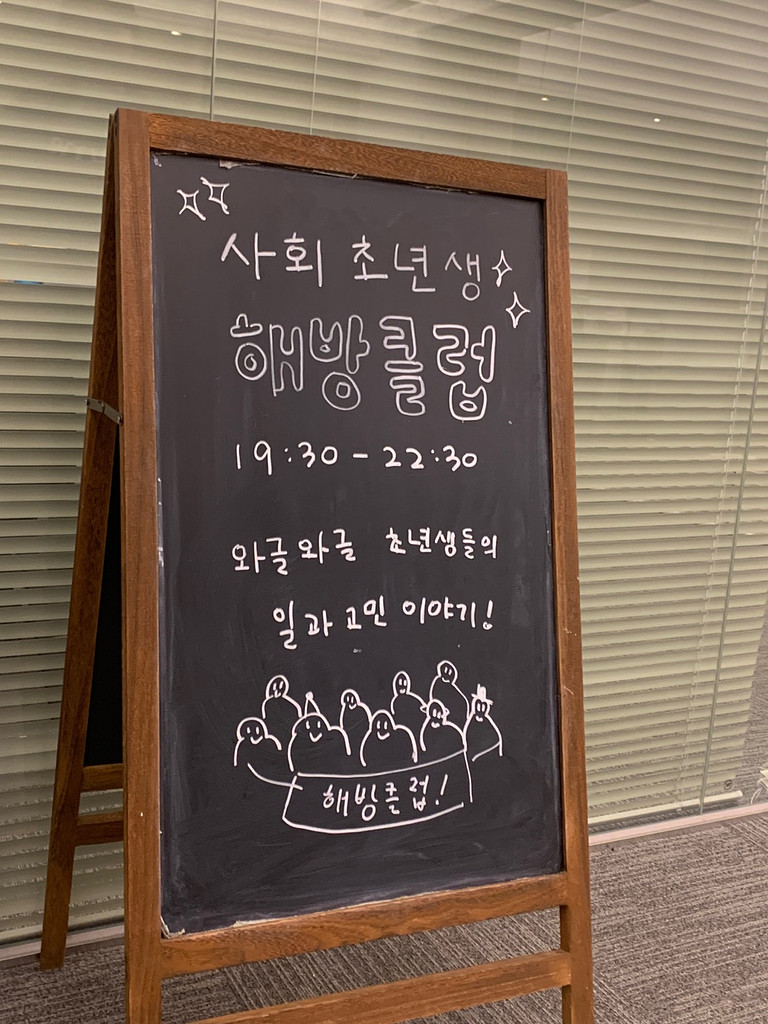 사회 초년생
해방클럽
19:30 - 22:30
와글와글 초년생들의
일과 고민 이야기!
해방클럽!